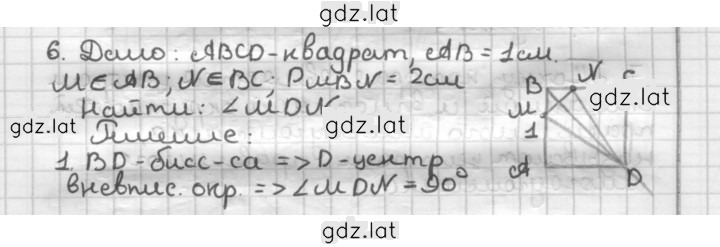 gdz.lat
6. Дано: ABCD-квадрат, AB = 1см.
M∈AB; N∈BC; P MBN = 2см
Найти: ∠MDN
gdz.lat
Решение:
1. BD-бисс-са => D-центр
вневпис. окр. => ∠MDN = 90°
B N C
gdz.lat
M
1
A D
gdz.lat
gdz.lat